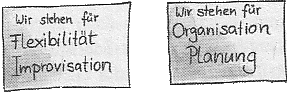 Wir stehen für
Flexibilität
Improvisation
Wir stehen für
Organisation
Planung